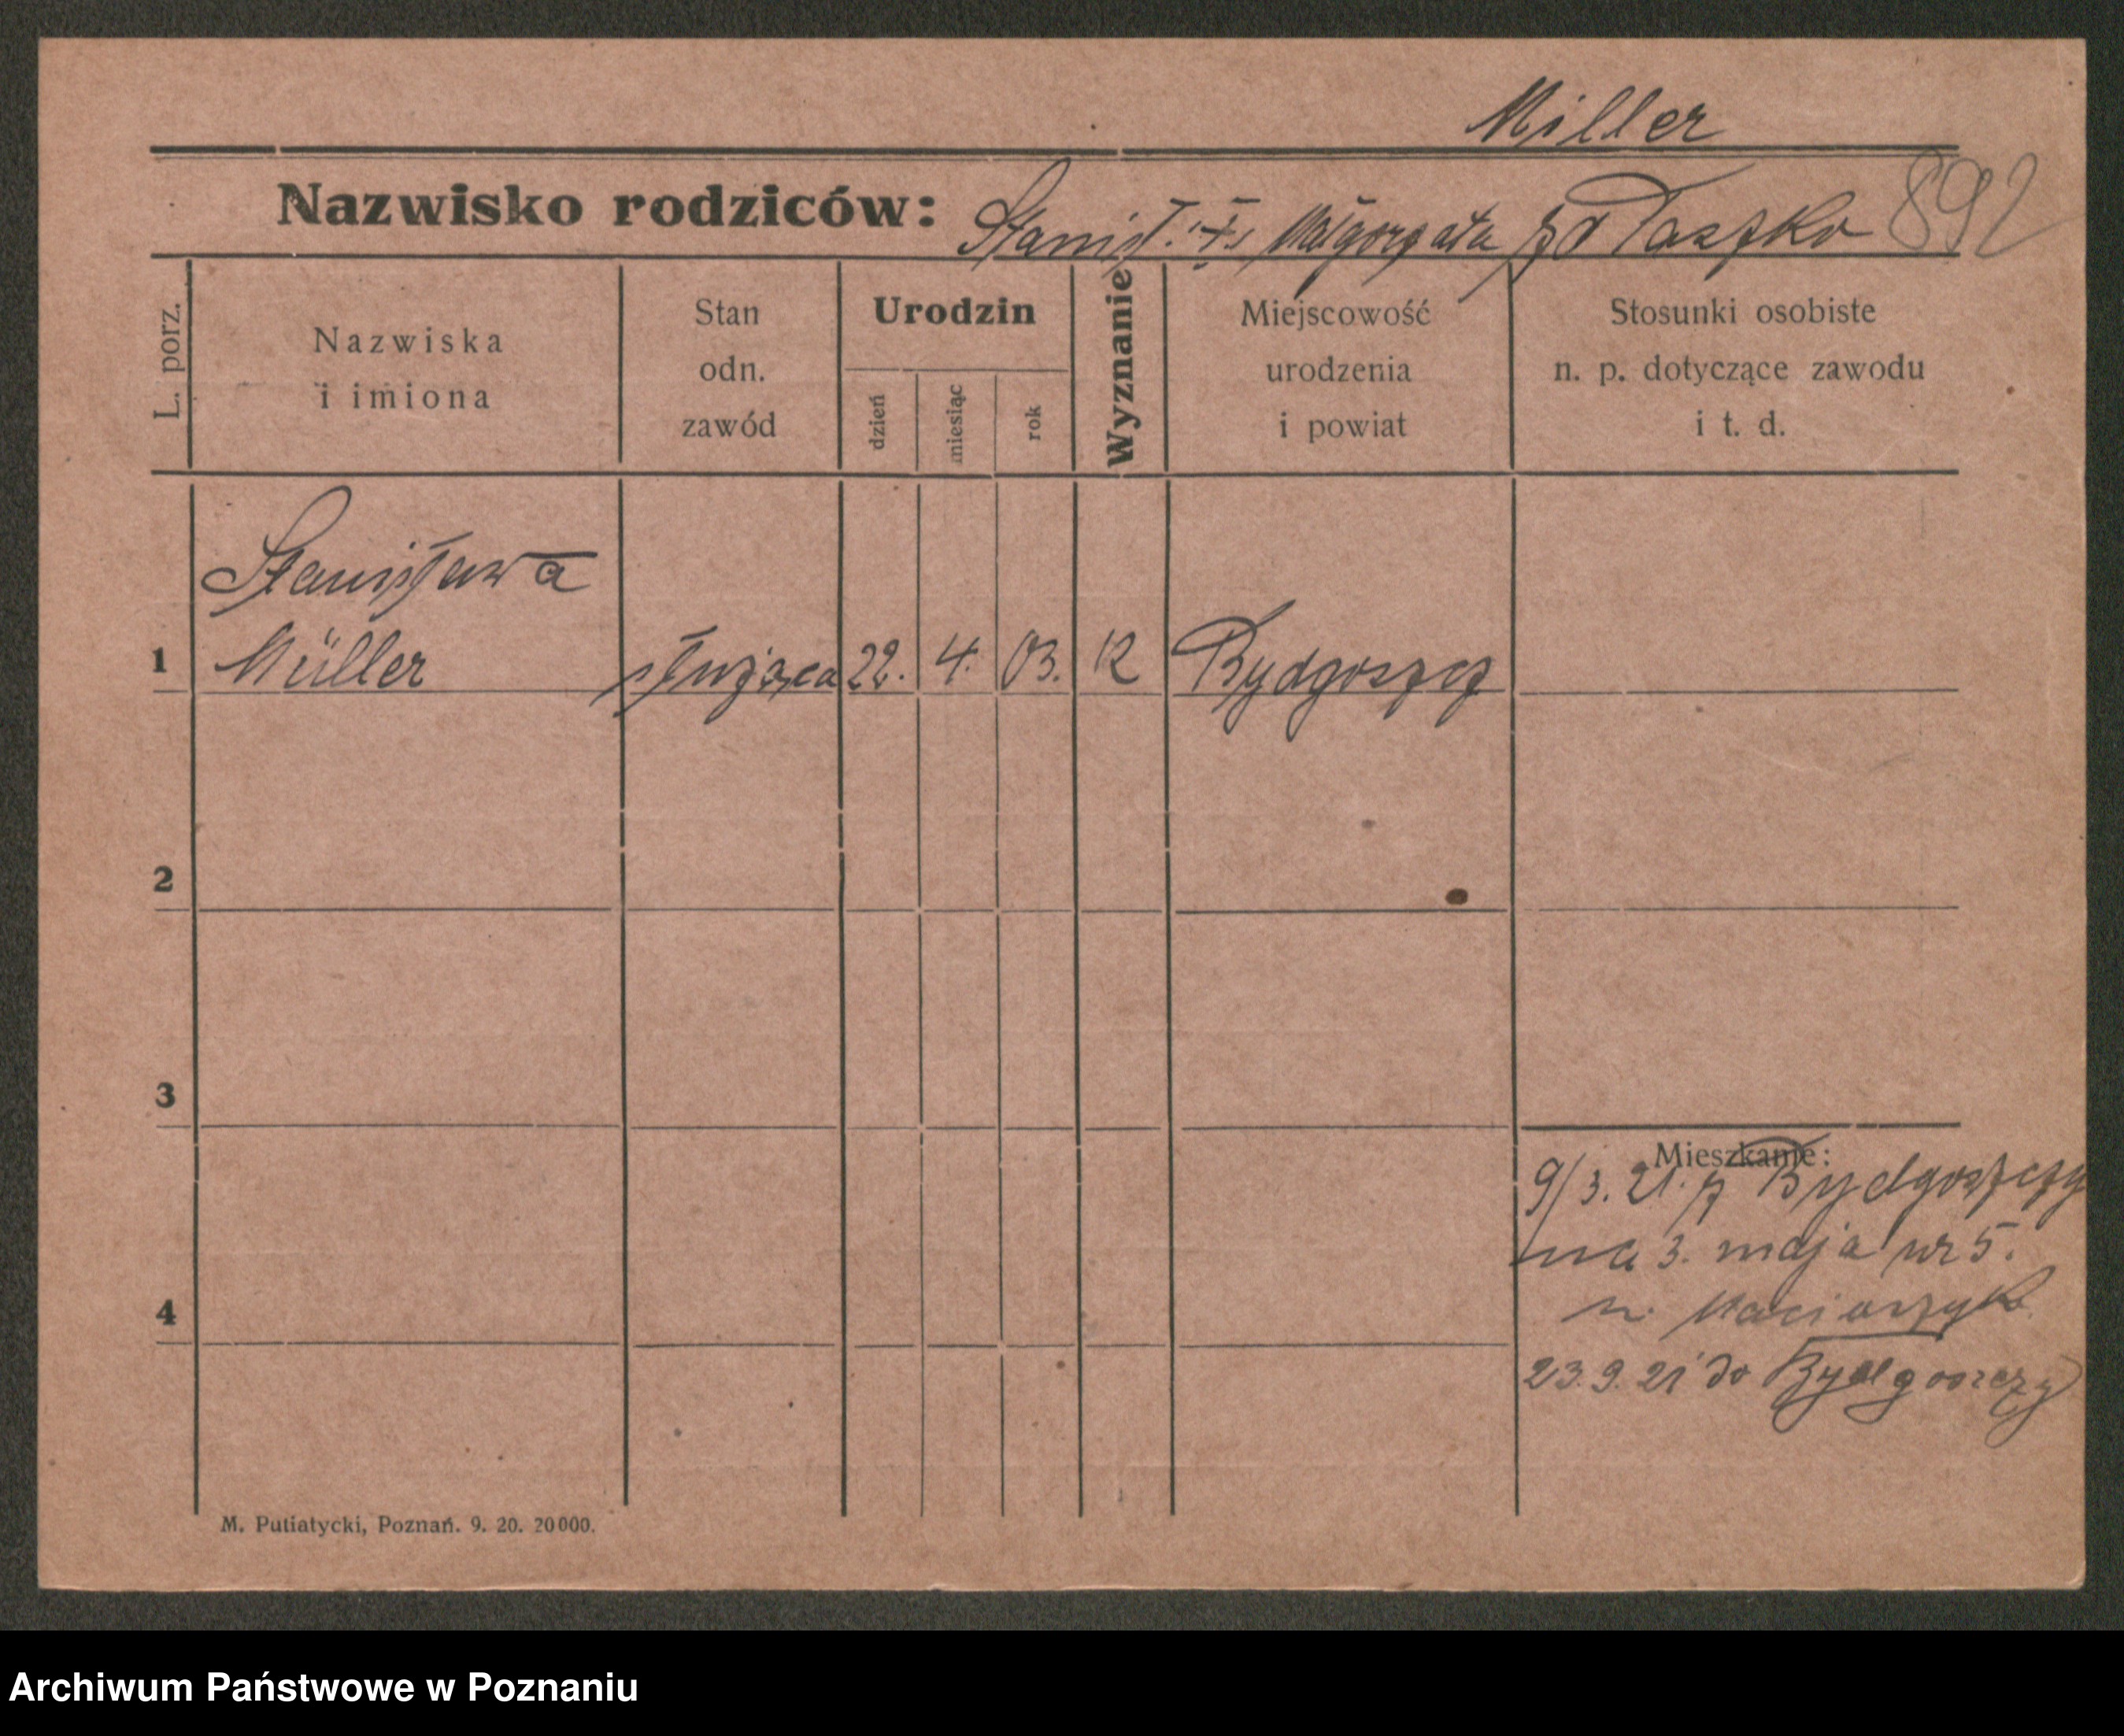 Miller
Nazwisko rodziców: Stanisł. i Małgorzata z d Paszko 892
L. porz.
Nazwiska
i imiona
Stan
odn.
zawód
Urodzin
dzień
miesiąc
rok
Wyznanie
Miejscowość
urodzenia
i powiat
Stosunki osobiste
n. p. dotyczące zawodu
i t. d.
Stanisława
1 Müller służąca 22. 4. 03. K Bydgoszcz
2
3
Mieszkanie:
9/3. 21. z Bydgoszczy
na 3. maja nr 5.
4
23.9.21 do Bydgoszczy
M. Putiatycki, Poznań. 9. 20. 20000.
Archiwum Państwowe w Poznaniu